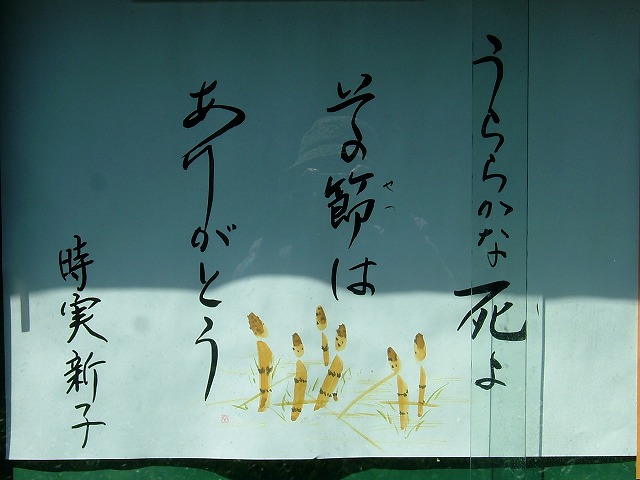 うららかな死よ
その節は
ありがとう
時実新子